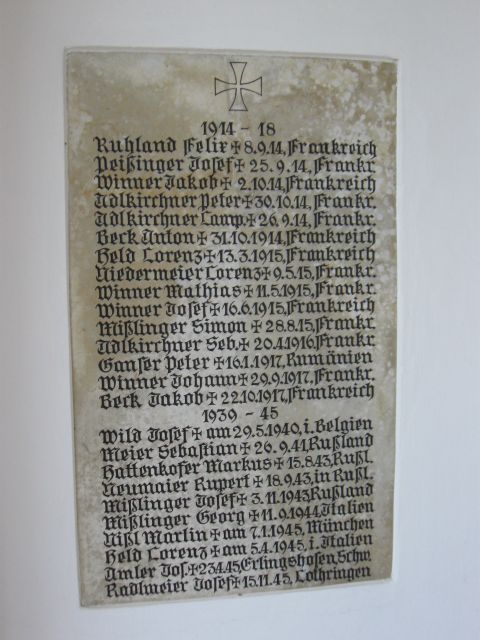 1914 - 18
Ruhland Felix ✠ 8.9.14, Frankreich
Peißinger Josef ✠ 25.9.14, Frankr.
Winner Jakob ✠ 2.10.14, Frankreich
Adlkirchner Peter ✠ 30.10.14, Frankr.
Adlkirchner Lamp. ✠ 26.9.14, Frankr.
Beck Anton ✠ 31.10.1914, Frankreich
Held Lorenz ✠ 13.3.1915, Frankreich
Niedermeier Lorenz ✠ 9.5.15, Frankr.
Winner Mathias ✠ 11.5.1915, Frankr.
Winner Josef ✠ 16.6.1915, Frankreich
Mißlinger Simon ✠ 28.8.15, Frankr.
Adlkirchner Seb. ✠ 20.4.1916, Frankr.
Ganser Peter ✠ 16.1.1917, Rumänien
Winner Johann ✠ 29.9.1917, Frankr.
Beck Jakob ✠ 22.10.1917, Frankreich
1939 - 45
Wild Josef ✠ am 29.5.1940, i. Belgien
Meier Sebastian ✠ 26.9.41, Rußland
Hattenkofer Markus ✠ 15.8.43, Rußl.
Neumaier Rupert ✠ 18.9.43, in Rußl.
Mißlinger Josef ✠ 3.11.1943, Rußland
Mißlinger Georg ✠ 11.9.1944, Italien
Aißl Martin ✠ am 7.1.1945, München
Held Lorenz ✠ am 5.4.1945, i. Italien
Amler Jos. ✠ 23.4.45, Erlingshofen, Schw.
Radlmeier Josef ✠ 15.11.45, Lothringen